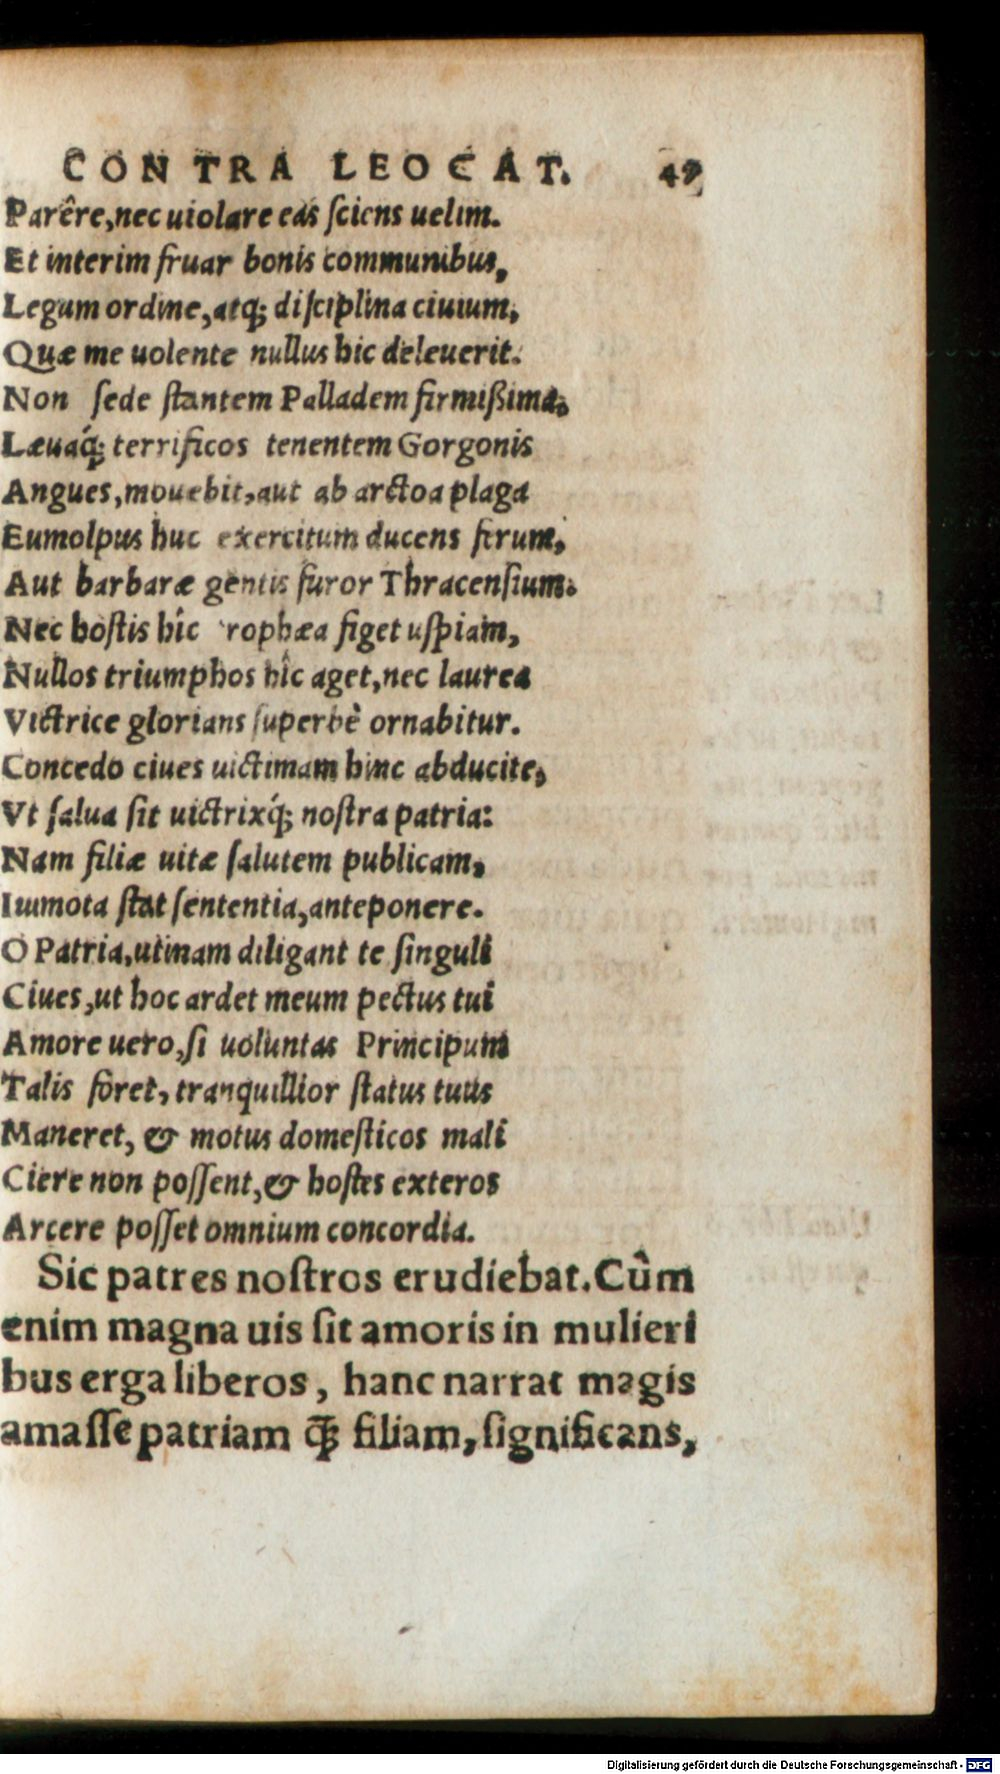 CONTRA LEOCAT. 49
Parêre,nec uiolare eas ſciens uelim.
Et interim fruar bonis communibus,
Legum ordine,atq; diſciplina ciuium,
Quæ me uolente nullus hic deleuerit.
Non ſede ſtantem Palladem firmißima,
Læuaq́; terrificos tenentem Gorgonis
Angues,mouebit,aut ab arctoa plaga
Eumolpus huc exercitum ducens ferum,
Aut barbaræ gentis furor Thracenſium.
Nec hostis hîc rophæa figet uſpiam,
Nullos triumphos hîc aget,nec laurea
Victrice glorians ſuperbè ornabitur.
Concedo ciues uictimam hinc abducite,
Vt ſalua ſit uictrixq́; noſtra patria:
Nam filiæ uitæ ſalutem publicam,
Immota ſtat ſententia,anteponere.
O Patria,utinam diligant te ſinguli
Ciues,ut hoc ardet meum pectus tui
Amore uero,ſi uoluntas Principum
Talis foret, tranquillior ſtatus tuus
Maneret, & motus domeſticos mali
Ciere non poſſent,& hoſtes exteros
Arcere poſſet omnium concordia.
Sic patres noſtros erudiebat.Cûm
enim magna uis ſit amoris in mulieri
bus erga liberos, hanc narrat magis
amaſſe patriam q̃ꝫ filiam,ſignificans,
Digitalisierung gefördert durch die Deutsche Forschungsgemeinschaft - DFG